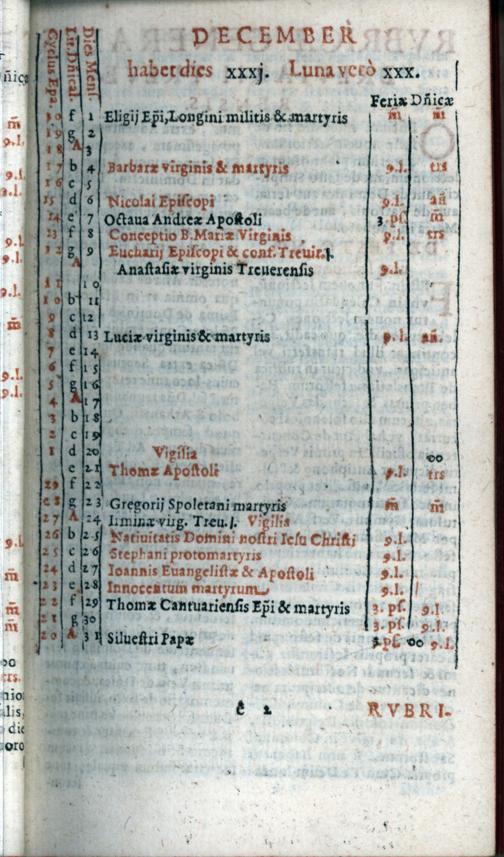 DECEMBER
habet dies xxxj. Luna verò xxx.
Cyclus Epa. Lit. Dñical. Dies Mens. Feriæ Dñicæ
f 1 Eligij Ep̃i, Longini militis & martyris m̃ m̃
19 g 2
18 A 3
17 b 4 Barbaræ virginis & martyris 9.l. trs
16 c 5
15 d 6 Nicolai Episcopi 9.l. añ
14 e 7 Octaua Andreæ Apostoli 3. ps. m̃
13 f 8 Conceptio B. Mariæ Virginis 9.l. trs
12 g 9 Eucharij Episcopi & conf. Treuir.
A Anastasiæ virginis Treuerensis 9.l.
11 10
10 b 11
9 c 12
8 d 13 Luciæ virginis & martyris 9.l. añ.
7 e 14
6 f 15
5 g 16
4 A 17
3 b 18
2 c 19
1 d 20 Vigilia
e 21 Thomæ Apostoli 9.l. trs
29 f 22
g 23 Gregorij Spoletani martyris m̃ m̃
27 A 24 Irminæ virg. Treu. Vigilia
26 b 25 Natiuitatis Domini nostri Iesu Christi 9.l.
25 c 26 Stephani protomartyris 9.l.
24 d 27 Ioannis Euangelistæ & Apostoli 9.l.
23 e 28 Innocentum martyrum 9.l.
22 f 29 Thomæ Cantuariensis Ep̃i & martyris 3. ps. 9.l.
21 g 30 3. ps. 9.l.
20 A 31 Siluestri Papæ 3. ps. 9.l.
2 RVBRI-